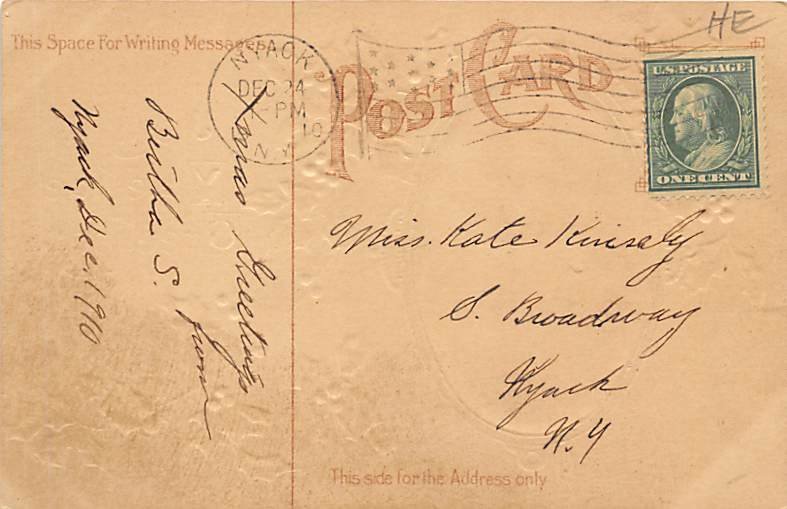 This Space For Writing Messages
POST CARD
HE
NYACK
DEC 24
PM
10
N.Y.
U.S. POSTAGE
ONE CENT
Xmas Greetings
from
Bertha S.
Nyack, Dec. 1910
Miss. Kate Kinsely
S. Broadway
Nyack
N.Y
This side for the Address only